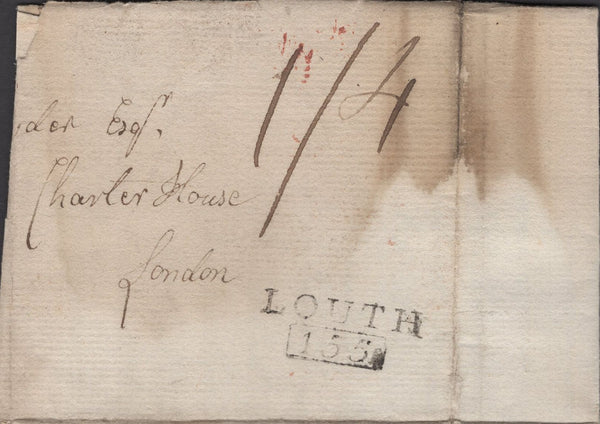 1/4
der Esqr.
Charter House
London
LOUTH
155